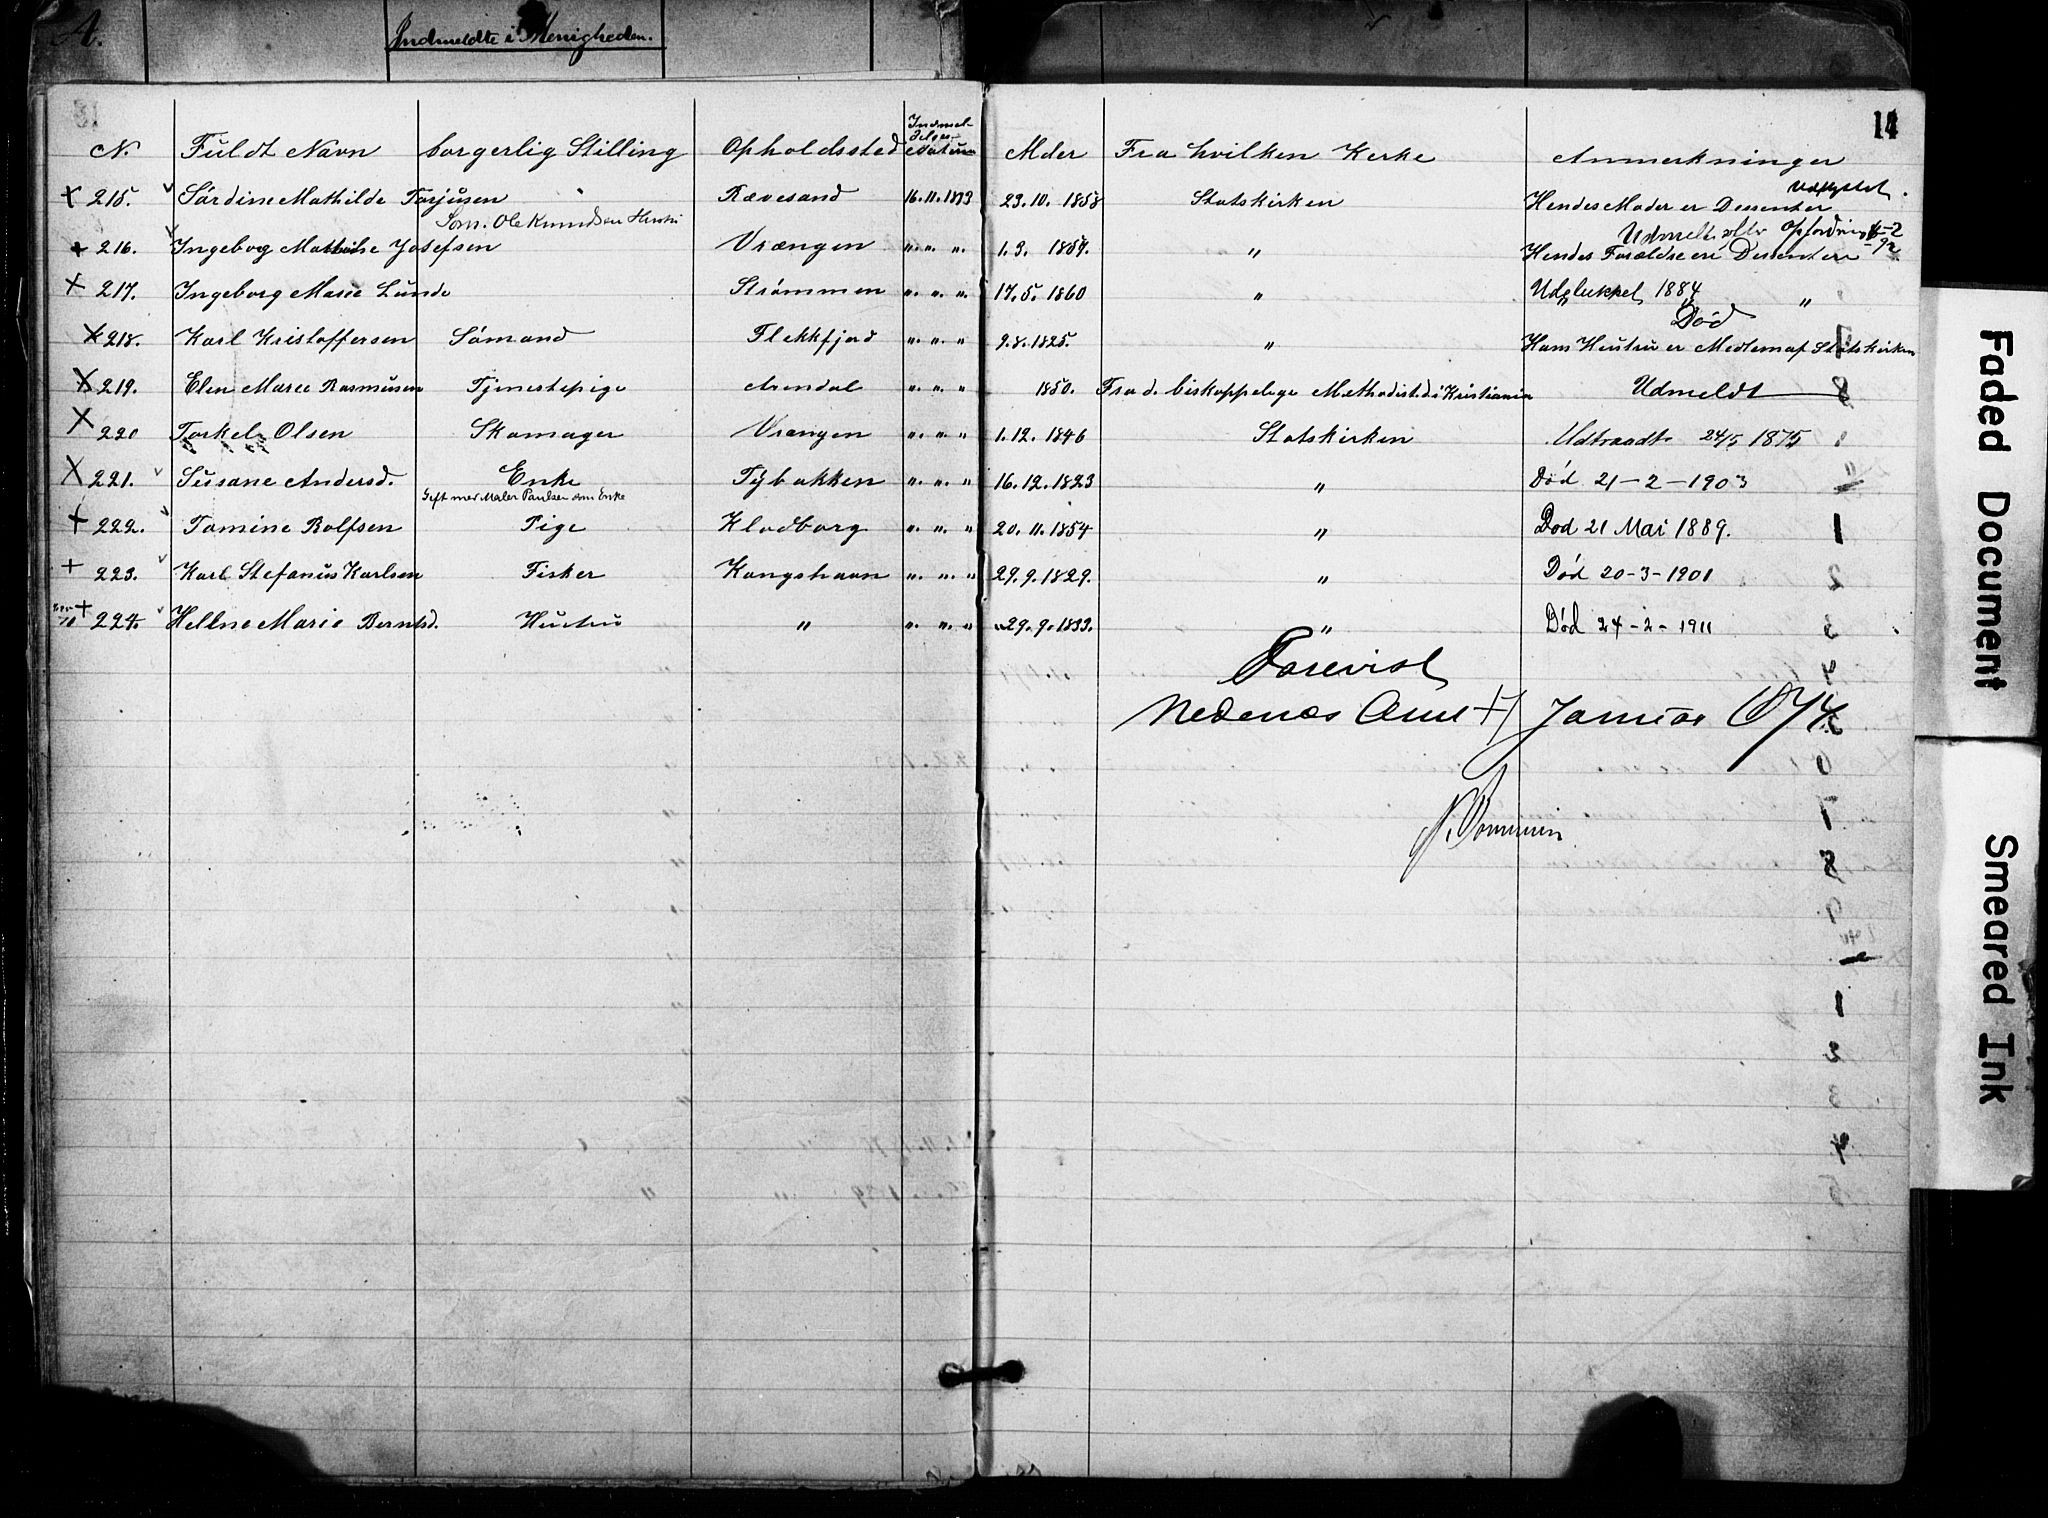 A.
Indmeldte i Menigheden.
14
N. Fuldt Navn borgerlig Stilling Opholdssted Indmeldelsesdatum Alder Fra hvilken Kirke Anmerkninger
215. Sørdine Mathilde Torjusen " Rævesand 16.11.1873 23.10.1858 Statskirken Hendes Moder er Dissenter Udflyttet.
Ole Knudsen Hustru
216. Ingeborg Mathilde Josefsen Vrængen " " " 1.3. 1857. " Hendes Forældre ere Dissentere
Udmeldt efter Opfordring
217. Ingeborg Marie Lunde Strømmen " " " 17.5.1860 " Udelukket 1884 "
218. Karl Kristoffersen Sømand Flekkfjord " " " 9.8.1825. " Hans Hustru er Medlem af Statskirken
Død
219. Elen Marie Rasmusen Tjenestepige Arendal " " " 1850. Fra d. biskoppelige Methodist. i Kristiania Udmeldt
220 Torkel Olsen Skomager Vrængen " " " 1.12.1846 Statskirken Udtraadt 24/5 1875
221. Susane Andersd. Enke Tybakken " " " 16.12.1823 " Död 21-2-1903
Gift med Maler Paulsen som Enke
222. Tomine Rolfsen Pige Klodborg " " " 20.11.1854 " Død 21 Mai 1889.
223. Karl Stefanus Karlsen Fisker Kongshavn " " " 29.9.1829. " Död 20-3-1901
224. Hellene Marie Berntsd. Hustru " " " " 29.9.1833. " Död 24-2-1911
Forevist
Nedenæs Amt 17 Januar 1874
Faded Document
Smeared Ink